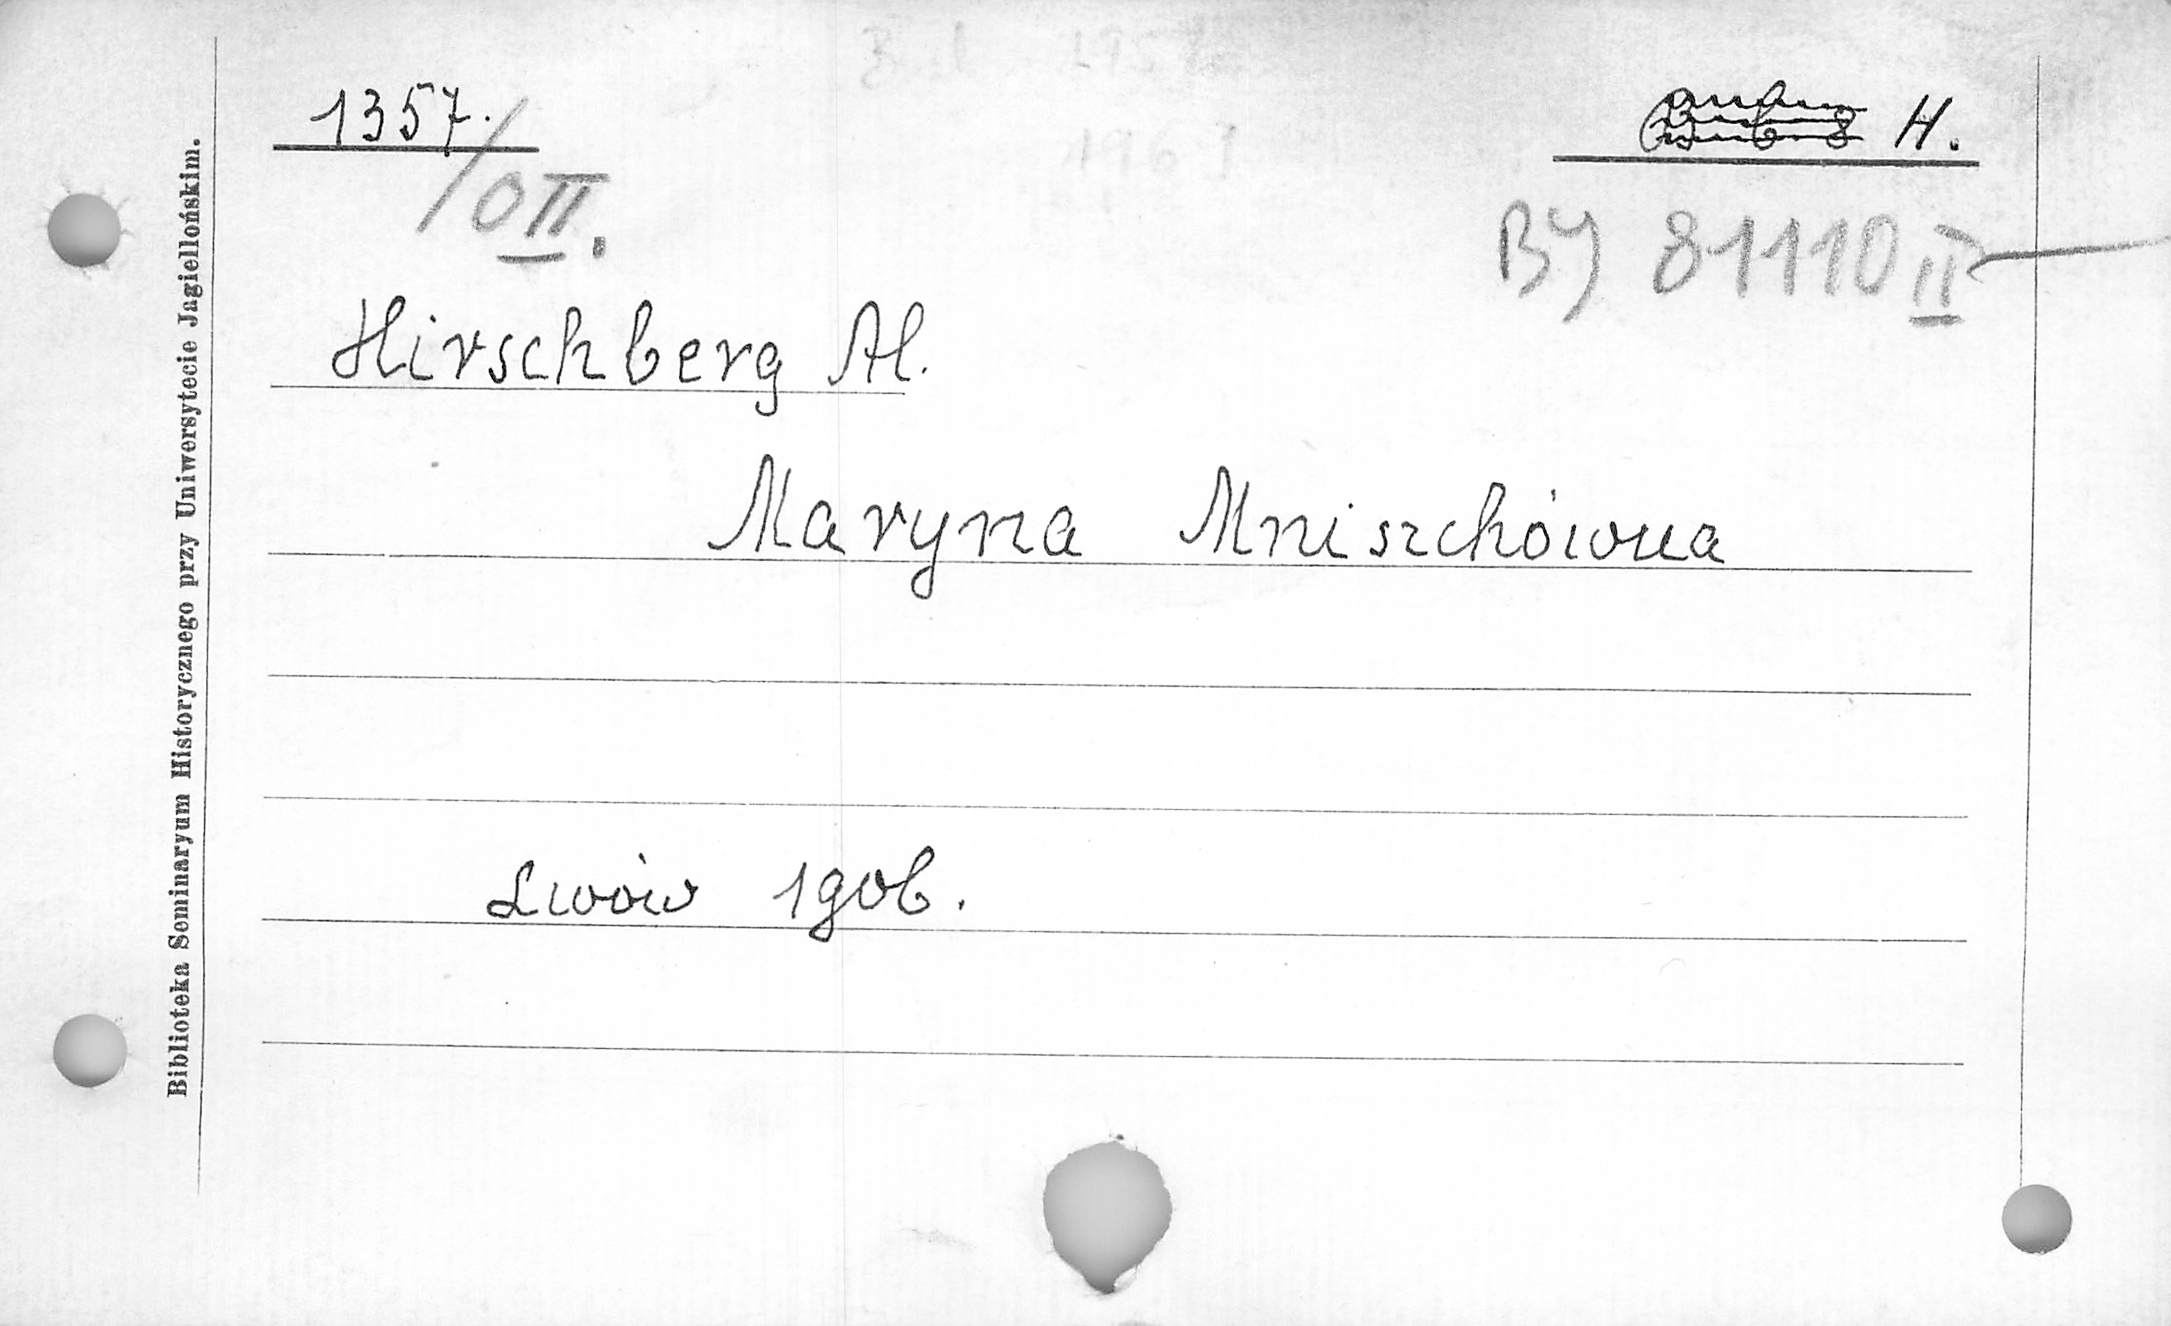 1357. H.
/OII.
BJ 81110 II
Hirschberg Al.
Maryna Mniszchówna
Lwów 1906.
Biblioteka Seminaryum Historycznego przy Uniwersytecie Jagiellońskim.